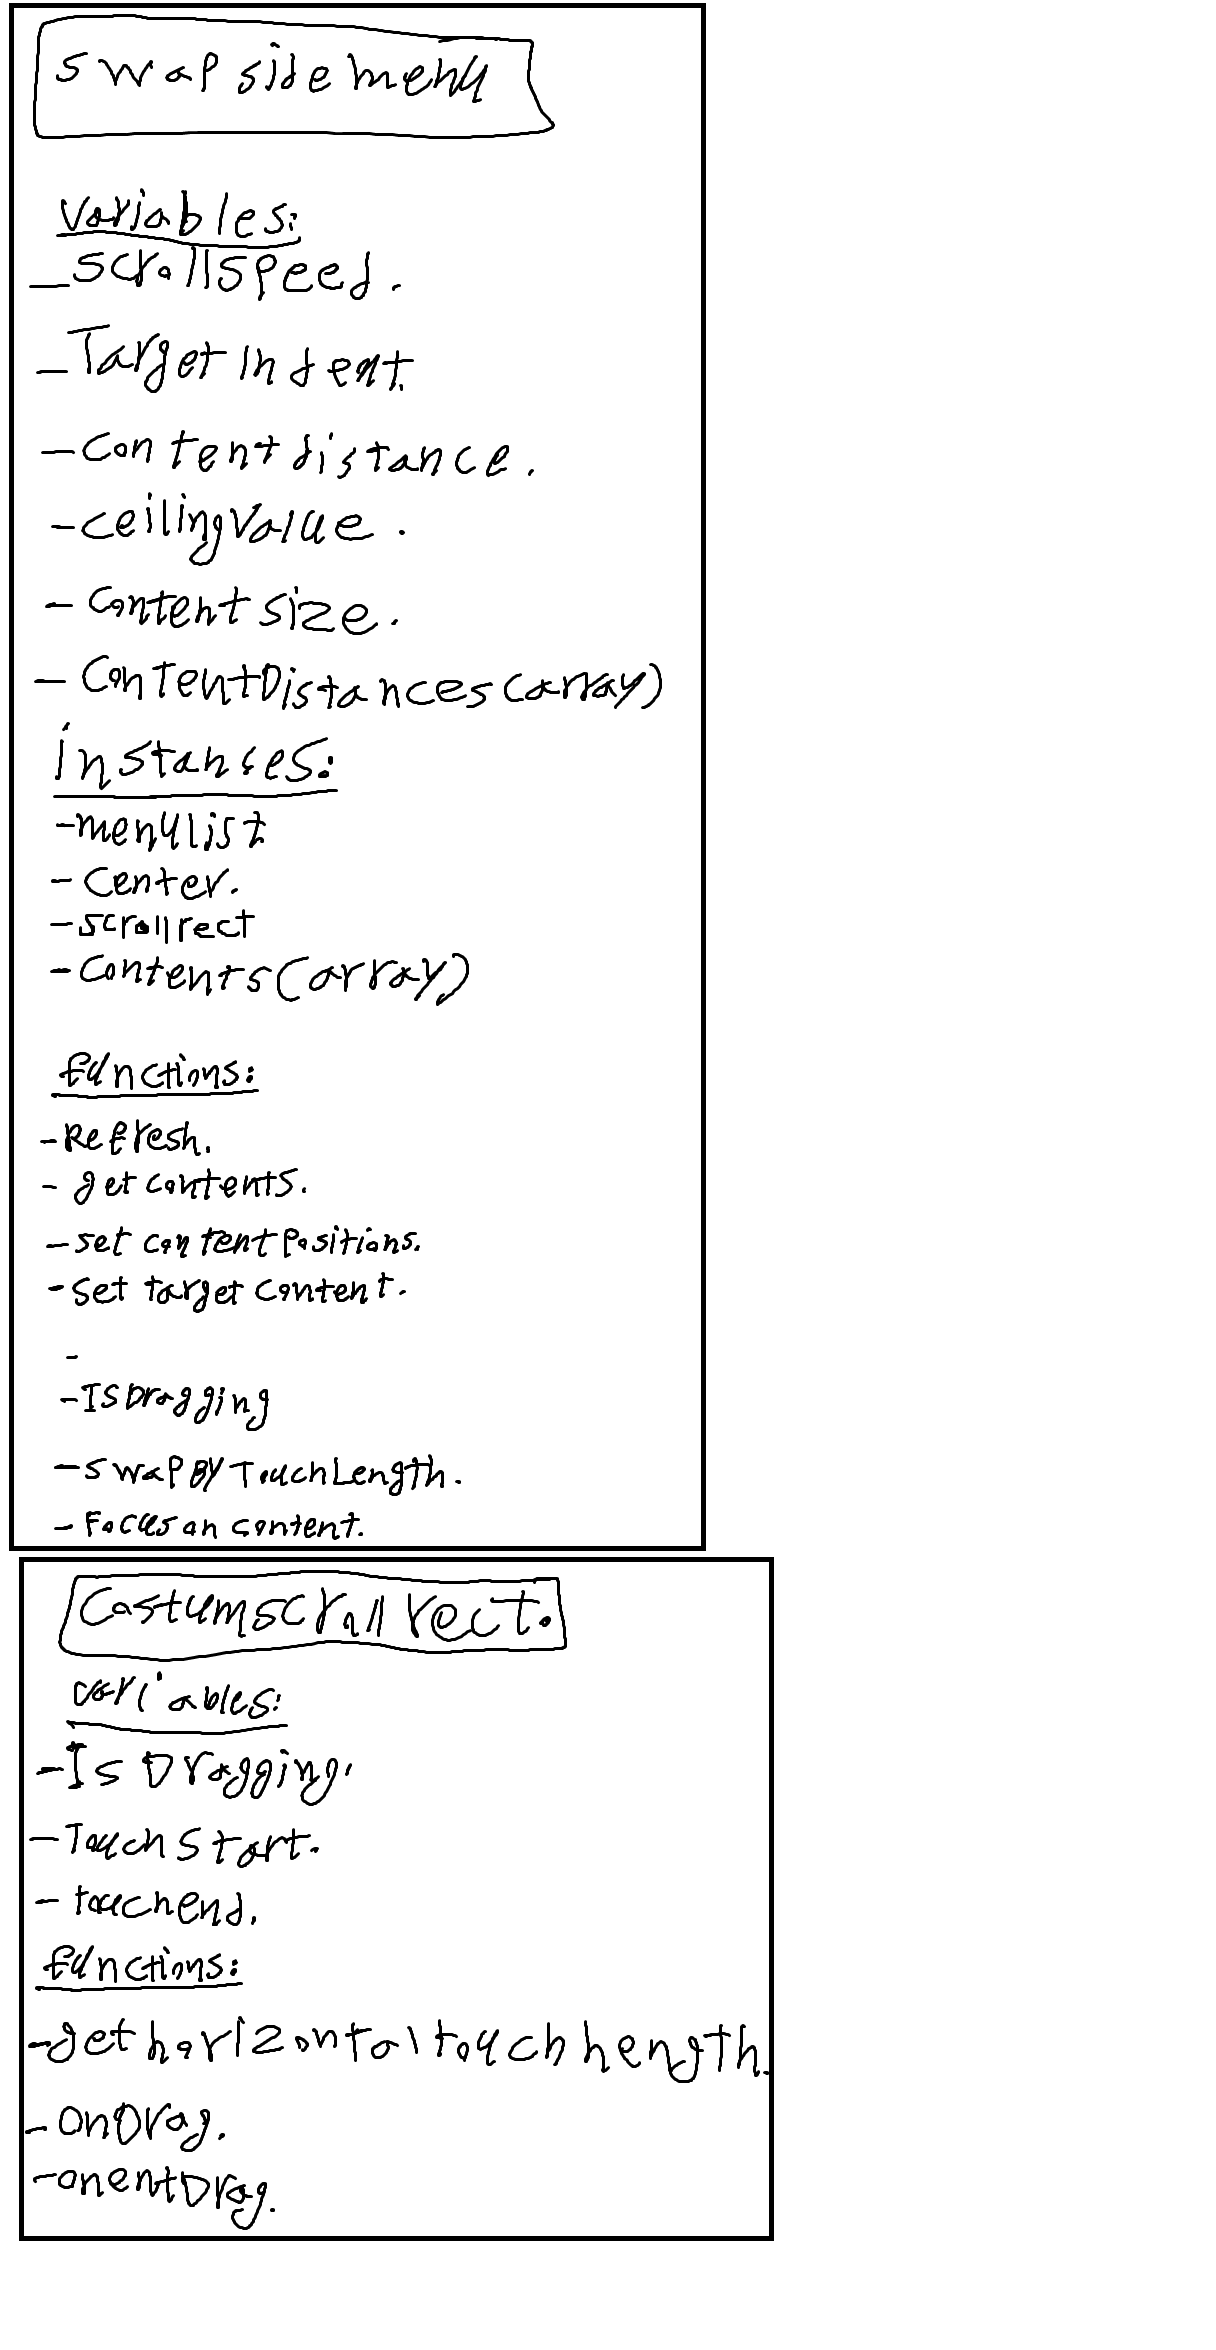 swap side menu
variables:
-scrollspeed.
-TargetIndent.
-Content distance.
-ceilingValue.
-content size.
-ContentDistances(array)
instances:
-menulist
-center.
-scrollrect
-contents(array)
functions:
-Refresh.
-get contents.
-set content positions.
-set target content.
-
-IsDragging
-swapBy TouchLength.
-Focus on content.
Costumscroll rect.
variables:
-Is Dragging.
-Touch Start.
-touchend.
functions:
-get horizontal touch hength.
-onDrag.
-onentDrag.